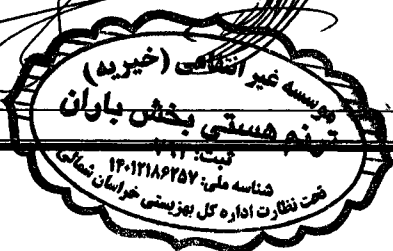 موسسه غیر انتفاعی (خیریه)
ترنم هستی بخش باران
ثبت:
شناسه ملی: ۱۴۰۱۲۱۸۶۲۵۷
تحت نظارت اداره کل بهزیستی خراسان شمالی